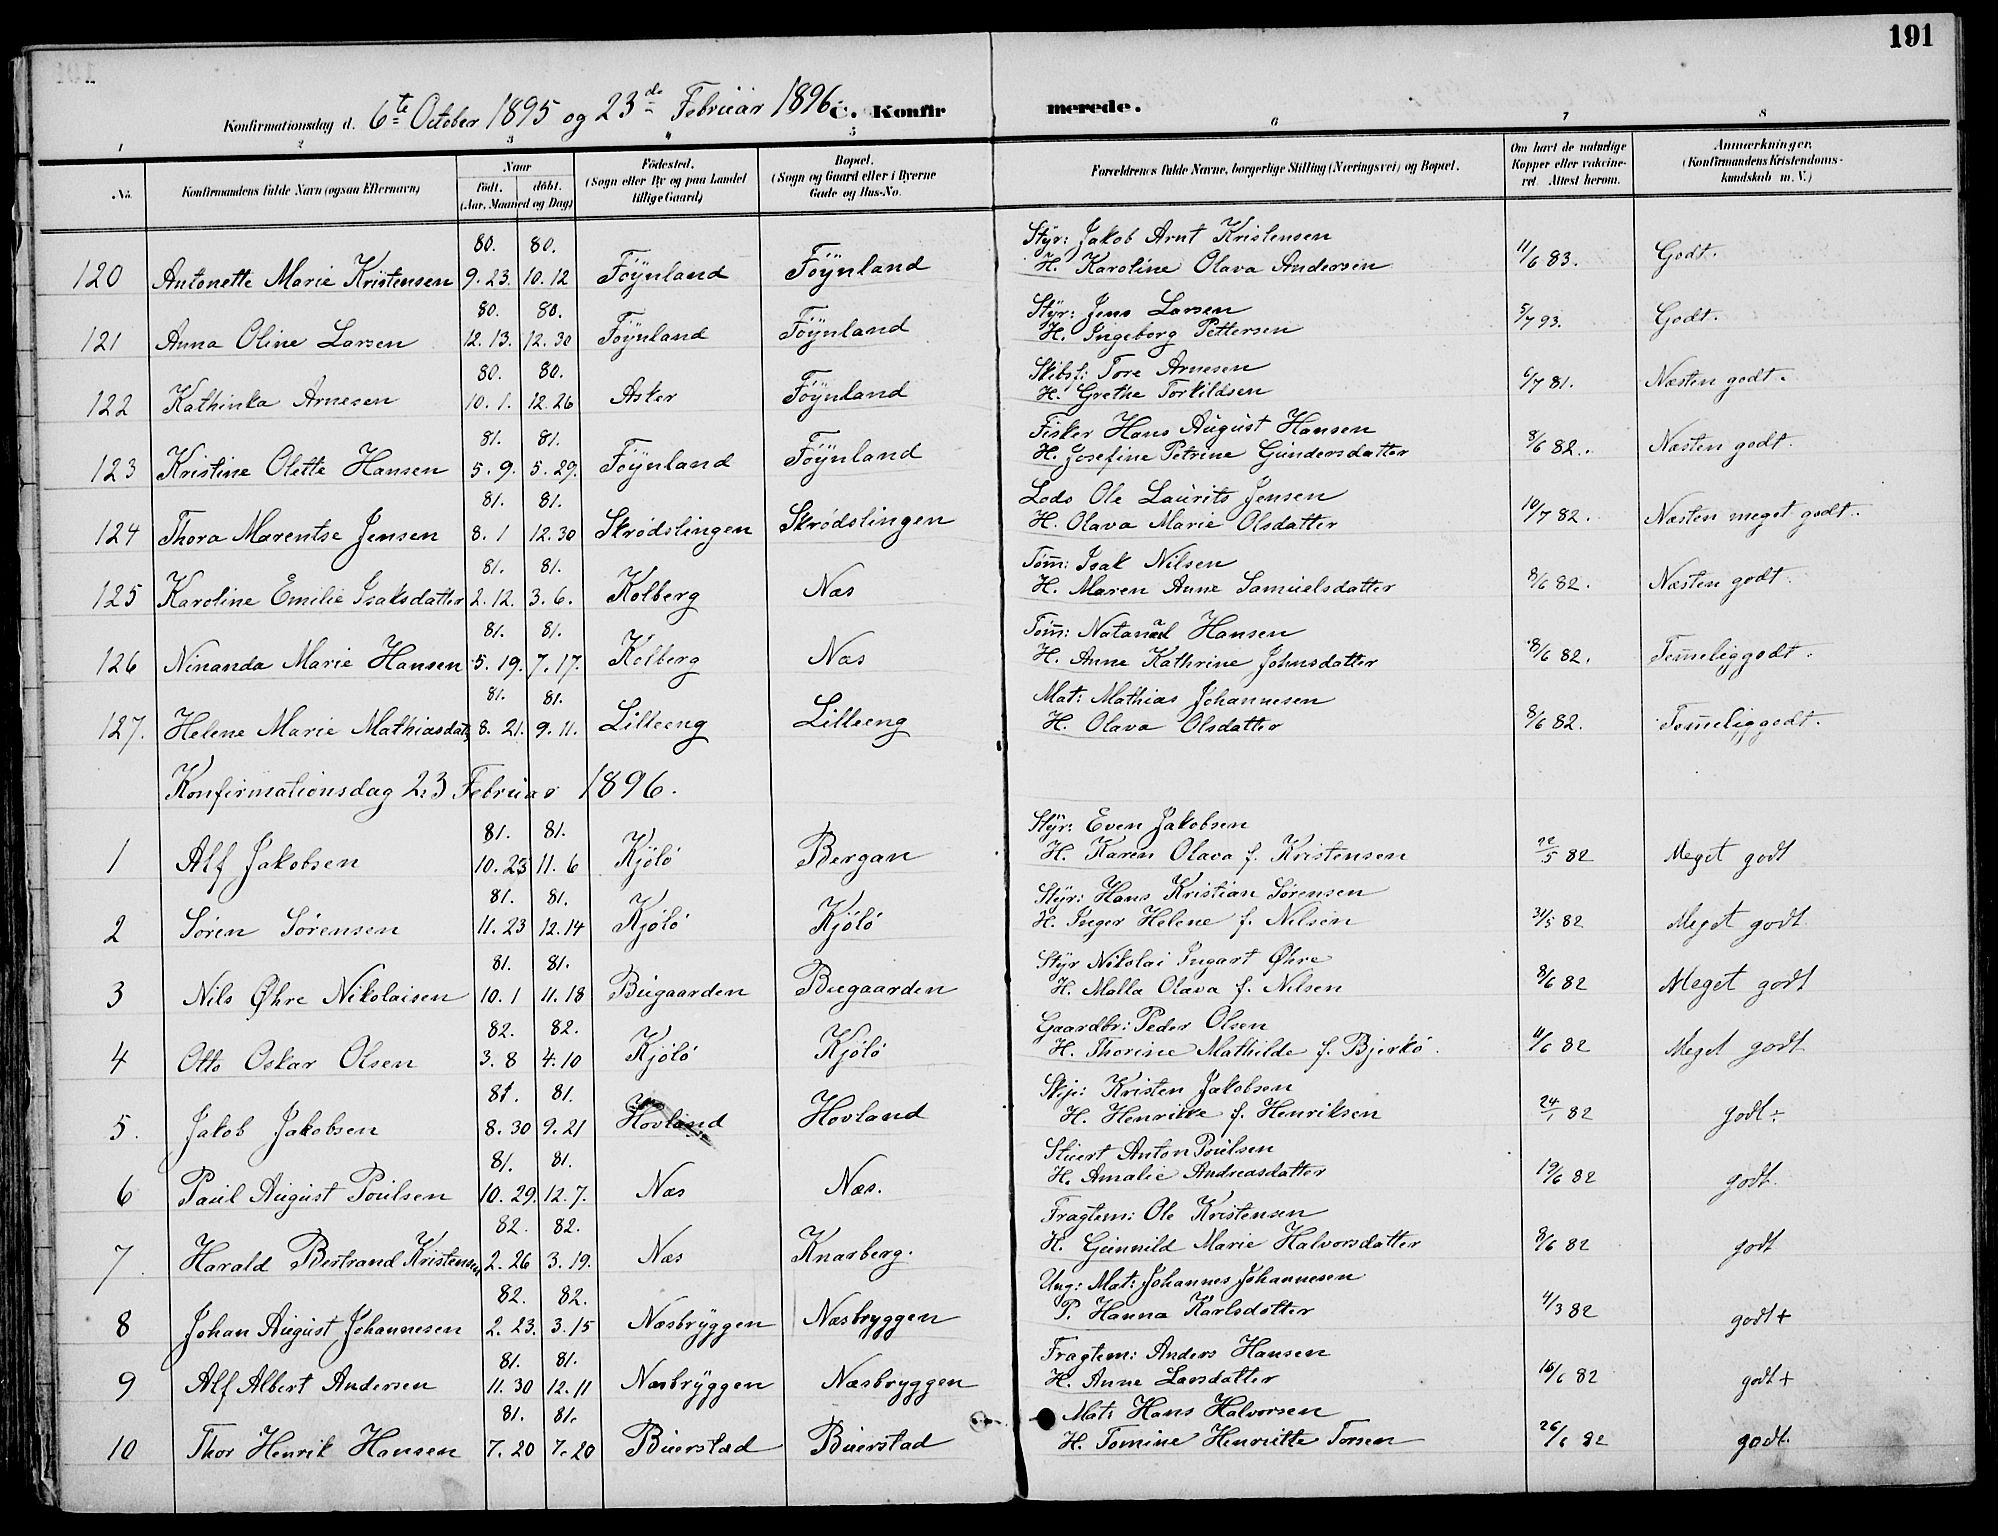 191
Konfirmationsdag d. 6te October 1895 og 23de Februar 1896 C. Konfirmerede.
1 2 3 4 5 6 7 8
No. Konfirmandens fulde Navn (ogsaa Efternavn) Naar født. døbt. (Aar, Maaned og Dag) Fødested. (Sogn eller By og paa Landet tillige Gaard) Bopæl. (Sogn og Gaard eller i Byerne Gade og Hus-No. Forældrenes fulde Navne, borgerlige Stilling (Næringsvei) og Bopæl. Om havt de naturlige Kopper eller vakcineret. Attest herom. Anmærkninger. (Konfirmandens Kristendomskundskab m. V.)
80. 80. Styr: Jakob Arnt Kristensen
120 Antonette Marie Kristensen 9. 23. 10. 12 Föynland Föynland H. Karoline Olava Andersen 11/6 83. Godt.
80. 80. Styr: Jens Larsen
121 Anna Oline Larsen 12. 13. 12. 30 Föynland Föynland H. Ingeborg Pettersen 5/7 93. Godt.
80. 80. Skibst: Tore Arnesen
122 Kathinka Arnesen 10. 1. 12. 26 Asker Föynland H. Grethe Torkildsen 6/7 81. Næsten godt.
81. 81. Fisker Hans August Hansen
123 Kristine Olette Hansen 5. 9. 5. 29. Föynland Föynland H. Josefine Petrine Gundersdatter 8/6 82. Næsten godt.
81. 81. Lods Ole Laurits Jensen
124 Thora Marentse Jensen 8. 1 12. 30 Skrödslingen Skrödslingen H. Olava Marie Olsdatter 10/7 82. Næsten meget godt.
81. 81. Töm: Isak Nilsen
125 Karoline Emilie Isaksdatter 2. 12. 3. 6. Kolberg Næs H. Maren Anne Samuelsdatter 8/6 82. Næsten godt
81. 81. Töm: Natanael Hansen
126 Ninanda Marie Hansen 5. 19. 7. 17. Kolberg Næs H. Anne Kathrine Johnsdatter 8/6 82. Temeliggodt.
81. 81. Mat: Mathias Johannesen
127. Helene Marie Mathiasdat. 8. 21. 9. 11. Lilleeng Lilleeng H. Olava Olsdatter 8/6 82. Temeliggodt.
Konfirmationsdag 23 Februar 1896.
81. 81. Styr: Even Jakobsen
1 Alf Jakobsen 10. 23 11. 6 Kjölö Bergan H. Karen Olava f. Kristensen 22/5 82 Meget godt
81. 81. Styr: Hans Kristian Sörensen
2 Sören Sörensen 11. 23 12. 14 Kjölö Kjölö H. Inger Helene f. Nilsen 31/5 82 Meget godt
81. 81. Styr Nikolai Ingart Øhre
3 Nils Øhre Nikolaisen 10. 1 11. 18 Bugaarden Bugaarden H. Malla Olava f. Nilsen 8/6 82 Meget godt
82. 82. Gaardbr: Peder Olsen
4 Otto Oskar Olsen 3. 8 4. 10 Kjölö Kjölö H. Thorine Mathilde f. Bjerkö. 11/6 82 Meget godt
81. 81. Skip: Kristen Jakobsen
5. Jakob Jakobsen 8. 30 9. 21 Hovland Hovland H. Henrikke f. Henriksen 24/1 82 godt ÷
81. 81. Stuert Anton Poulsen
6 Paul August Poulsen 10. 29. 12. 7. Næs Næs. H. Amalie Andreasdatter 19/6 82 godt.
82. 82. Fragtem: Ole Kristensen
7. Harald Bertrand Kristensen 2. 26 3. 19. Næs Knarberg. H. Gunnild Marie Halvorsdatter 8/6 82 godt
82. 82. Ung: Mat: Johannes Johannesen
8 Johan August Johannesen 2. 23. 3. 15 Næsbryggen Næsbryggen P. Hanna Karlsdatter 4/3 82 godt +
81. 81. Fragtem: Anders Hansen
9 Alf Albert Andersen 11. 30 12. 11 Næsbryggen Næsbryggen H. Anne Larsdatter 16/6 82 godt +
81. 81. Mat: Hans Halvorsen
10 Thor Henrik Hansen 7. 20 7. 20 Buerstad Buerstad H. Tomine Henriette Torsen 26/6 82 godt.